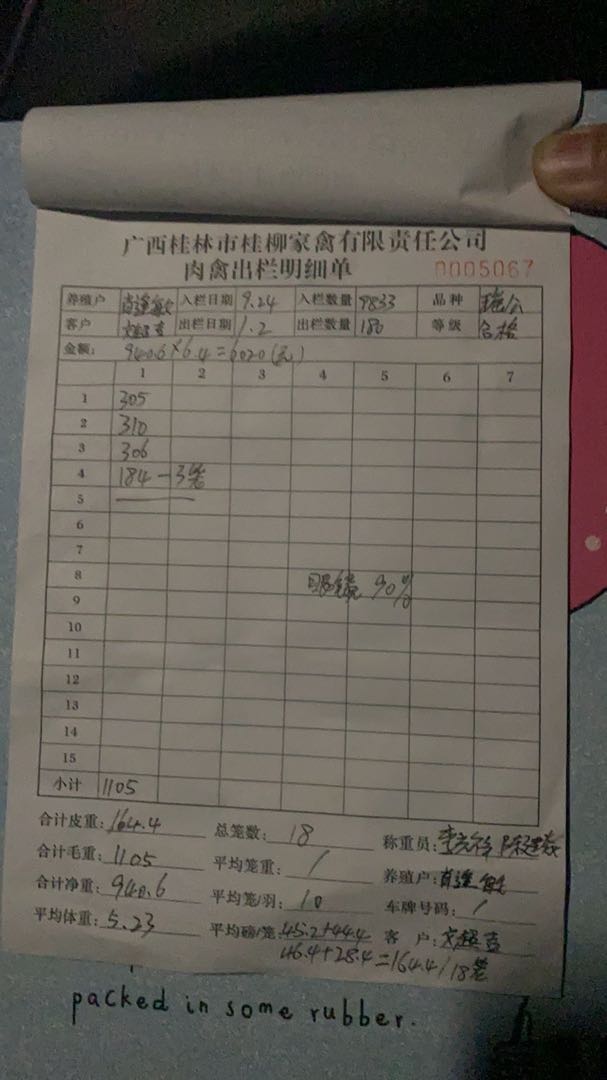 广西桂林市桂柳家禽有限责任公司
肉禽出栏明细单 0005067
养殖户 入栏日期 9.24 入栏数量 9833 品种
客户 出栏日期 1.2 出栏数量 180 等级 合格
金额: 940.6×6.4=6020(元)
1 2 3 4 5 6 7
1 305
2 310
3 306
4 184-3笼
5
6
7
8 眼镜 90%
9
10
11
12
13
14
15
小计 1105
合计皮重: 164.4 总笼数: 18 称重员:
合计毛重: 1105 平均笼重: / 养殖户:
合计净重: 940.6 平均笼/羽: 10 车牌号码: /
平均体重: 5.23 平均磅/笼: 45.2+44.4 客户:
46.4+28.4=164.4/18笼
packed in some rubber.